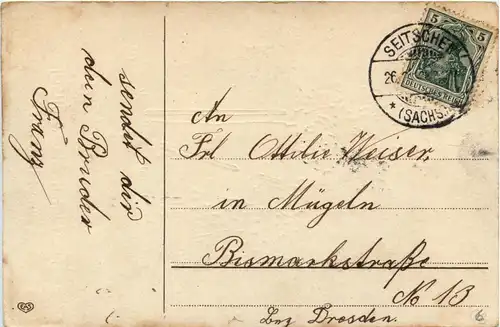 sendet dir
dein Bruder
Franz
An
Frl Ottilie Weiser,
in Mügeln
Bismarkstraße
No 13
Bez Dresden.
5 5
DEUTSCHES REICH
SEITSCHEN
26.
* (SACHS.)
6